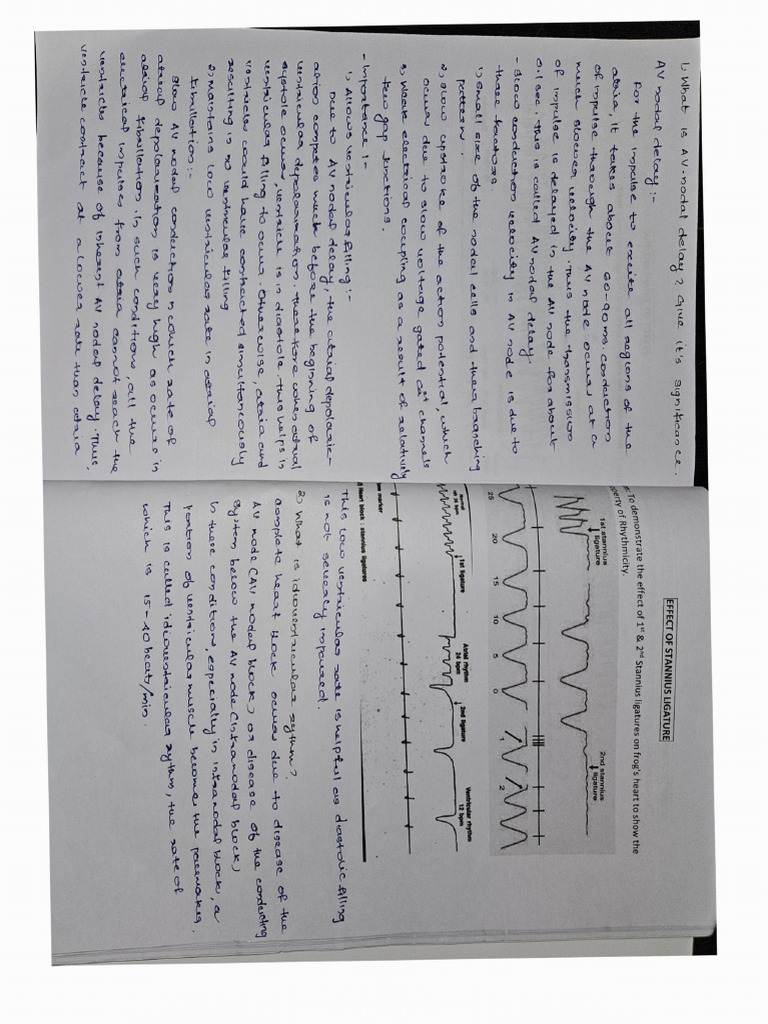 1) What is AV-nodal delay? Give it's significance.
AV nodal delay :-
For the impulse to excite all regions of the
atria, it takes about 60-90 ms. conduction
of impulse through the AV node occurs at a
much slower velocity. Thus the transmission
of impulse is delayed in the AV node for about
0.1 sec. This is called AV nodal delay.
- Slow conduction velocity in AV node is due to
three factors.
1) Small size of the nodal cells and their branching
pattern.
2) slow upstroke of the action potential, which
occurs due to slow voltage gated ca²⁺ channels
3) Weak electrical coupling as a result of relatively
few gap junctions.
- Importance :-
1) Allows ventricular filling :-
Due to AV nodal delay, the atrial depolariz-
ation completes much before the beginning of
ventricular depolarization. Therefore when atrial
systole occurs, ventricle is in diastole. This helps in
ventricular filling to occur. Otherwise, atria and
ventricles would have contracted simultaneously
resulting in no ventricular filling
2) Maintains low ventricular rate in atrial
fibrillation :-
Slow AV nodal conduction in which rate of
atrial depolarization is very high as occurs in
atrial fibrillation. In such conditions, all the
electrical impulses from atria cannot reach the
ventricles because of inherent AV nodal delay. Thus,
ventricles contract at a lower rate than atria
EFFECT OF STANNIUS LIGATURE
To demonstrate the effect of 1st & 2nd Stannius ligatures on frog's heart to show the
perty of Rhythmicity.
1st stannius
ligature
2nd stannius
ligature
25 20 15 10 5 0 1 2
1st ligature
Atrial rhythm
24 bpm
2nd ligature
Ventricular rhythm
12 bpm
me marker
Heart block : stannius ligatures
This low ventricular rate is helpful as diastolic filling
is not severely impaired.
2) What is idioventricular rythm?
Complete heart block occurs due to disease of the
AV node (AV nodal block) or disease of the conducting
system below the AV node (Intranodal block)
In these conditions, especially in intranodal block, a
portion of ventricular muscle become the pacemaker.
This is called idioventricular rythm, the rate of
which is 15-40 beats/min.